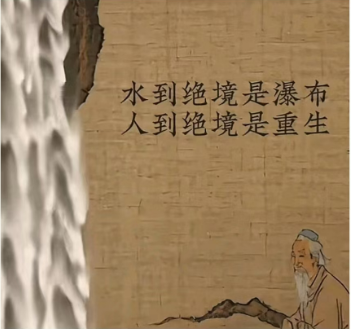 水到绝境是瀑布
人到绝境是重生